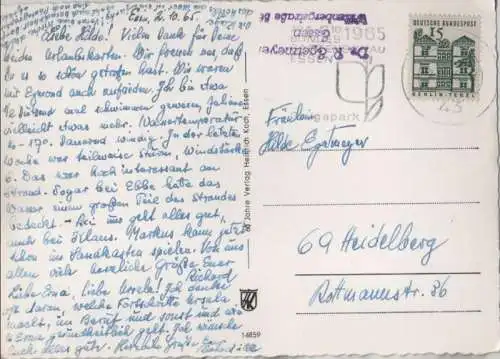 Essen, 2.10.65
Liebe Hilde! Vielen Dank für Deine
beiden Urlaubskarten. Wir freuen uns, daß
Du es so schön getroffen hast. Wir waren
mit auch zufrieden. Ich bin etwa
mal schwimmen gewesen, Juliane
vielleicht etwas mehr. Wassertemperatur
16-17°. Dauernd windig. In der letzten
Woche war teilweise Sturm, Windstärke
Das war hoch interessant am
Strand. Sogar bei Ebbe hatte das
Wasser einen großen Teil des Strandes
bedeckt. - Bei uns geht alles gut,
auch bei Markus kann jetzt
schon im Sandkasten spielen. Von uns
allen viele herzliche Grüße Euer
Richard
Liebe Erna, liebe Ursela! Ich denke
daran, welche Fortschritte Ursela
macht, im Beruf und sonst und wie
es Erna gesundheitlich geht. Ich wünsche
Euch alles gute. Herzliche Grüße Euer
60 Jahre Verlag Heinrich Koch, Essen
14859
Dr. R. Egetmeyer
Essen
Wittenbergstraße
1965
ESSEN
grugapark
DEUTSCHE BUNDESPOST
15
BERLIN-TEGEL
Fräulein
Hilde Egetmeyer
69 Heidelberg
Rottmannstr. 36